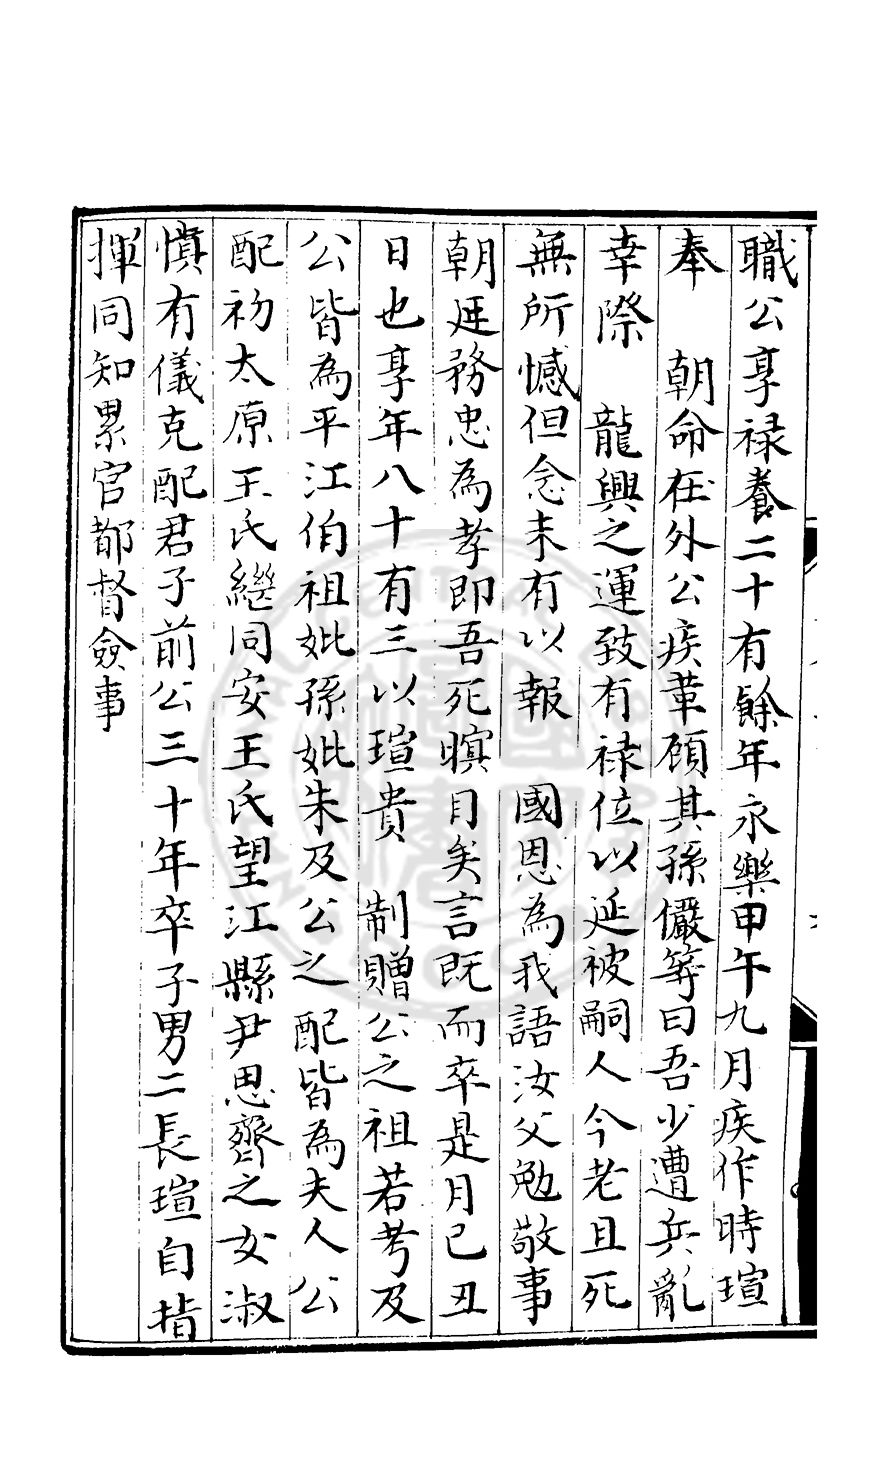 職公享祿養二十有餘年永樂甲午九月疾作時瑄
奉　朝命在外公疾革顧其孫儼等曰吾少遭兵亂
幸際　龍興之運致有祿位以延被嗣人今老且死
無所憾但念未有以報　國恩為我語汝父勉敬事
朝廷務忠為孝即吾死瞑目矣言既而卒是月己丑
日也享年八十有三以瑄貴　制贈公之祖若考及
公皆為平江伯祖妣孫妣朱及公之配皆為夫人公
配初太原王氏繼同安王氏望江縣尹思齊之女淑
慎有儀克配君子前公三十年卒子男二長瑄自指
揮同知累官都督僉事